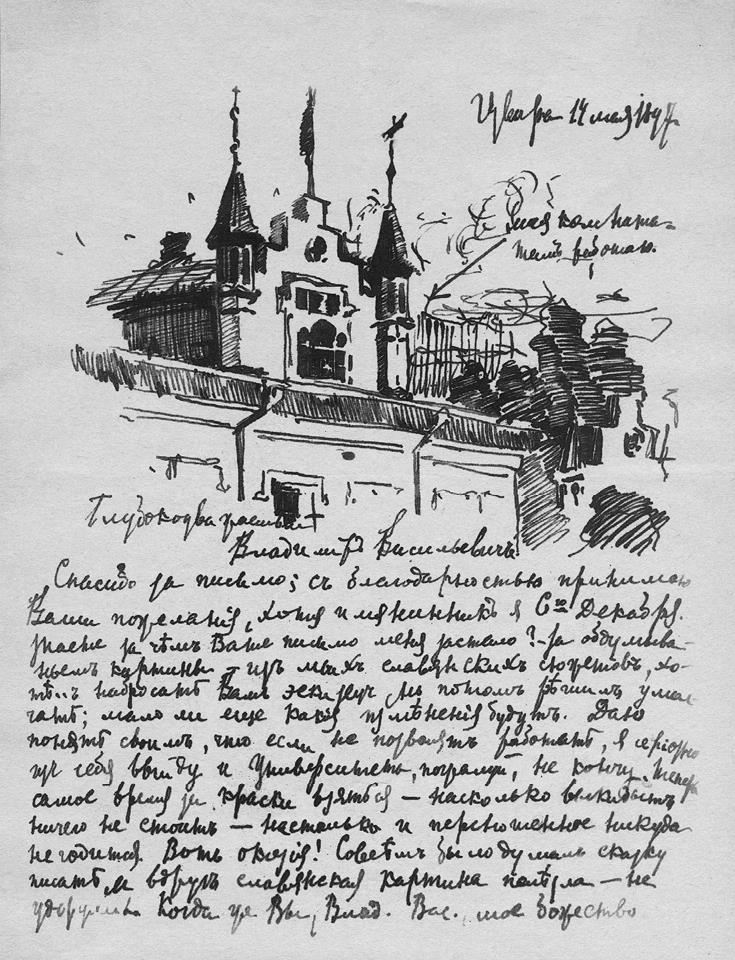 Извара 14 мая 1897
Моя комната-
тамъ работаю.
Глубокоуважаемый
Владимiръ Васильевичъ
Спасибо за письмо; съ благодарностью принимаю
Ваши пожеланiя, хотя имянинникъ я 6го Декабря.
Знаете за чѣмъ Ваше письмо меня застало? – За обдумыва-
ньемъ картины – изъ моихъ славянскихъ сюжетовъ, хо-
тѣлъ набросать Вамъ потомъ рѣшилъ умол-
чать; мало ли еще какiя измѣненiя будутъ. Даю
понять своимъ, что если не позволятъ работать, я серiозно
изъ себя выйду и Университетъ, пожалуй, не кончу. Теперь
самое время за краски взяться – насколько выкидышъ
ничего не стоитъ – настолько и переношенное никуда
не годится. Вотъ оказiя! Совсѣмъ было думалъ сказку
писать, и вдругъ славянская картина полѣзла – не
удержишь. Когда же Вы, Влад. Вас., мое божество